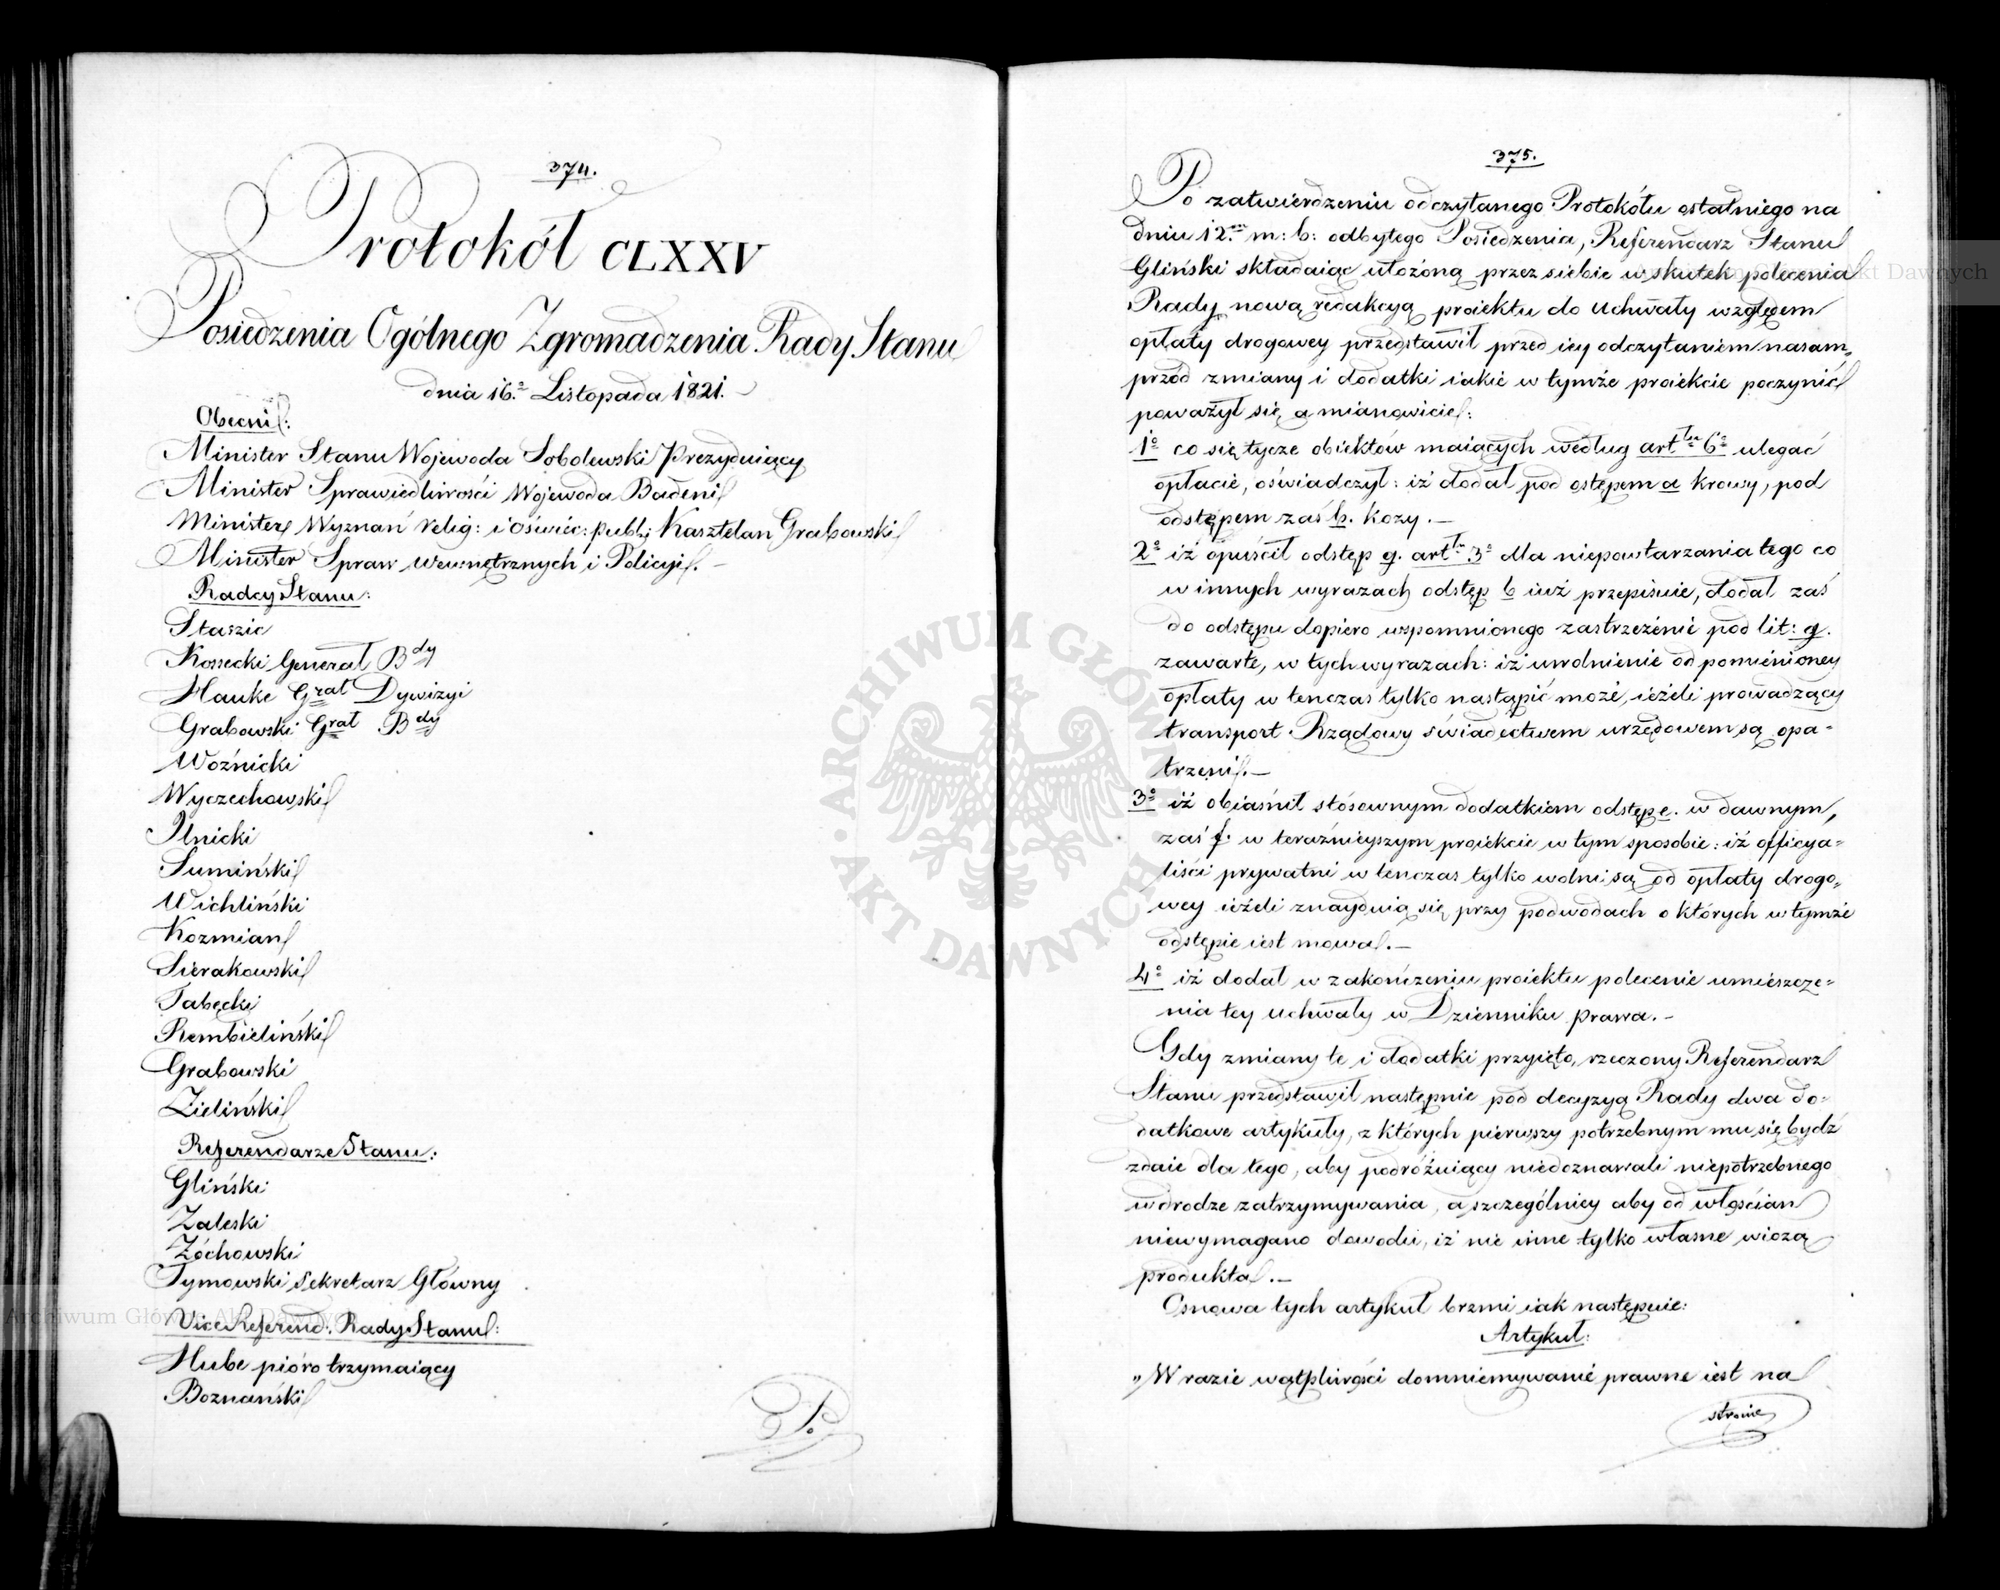 374.
Protokół CLXXV
Posiedzenia Ogólnego Zgromadzenia Rady Stanu
dnia 16.º Listopada 1821. –
Obecni:
Minister Stanu Wojewoda Sobolewski Prezyduiący
Minister Sprawiedliwości Wojewoda Badeni
Minister Wyznań relig: i oświéc: publ: Kasztelan Grabowski
Minister Spraw wewnętrznych i Policyi. –
Radcy Stanu:
Staszic
Kossecki Generał Bdy
Hauke Grał Dywizyi
Grabowski Grał Bdy
Woźnicki
Wyczechowski
Ilnicki
Sumiński
Wichliński
Kozmian
Sierakowski
Tabęcki
Rembieliński
Grabowski
Zieliński
Referendarze Stanu:
Gliński
Zaleski
Żóchowski
Tymowski Sekretarz Główny
Vice Referend: Rady Stanu:
Hube pióro trzymaiący
Boznański
Po
375.
Po zatwierdzeniu odczytanego Protokółu ostatniego na
dniu 12. m: b: odbytego Posiedzenia, Referendarz Stanu
Gliński składaiąc ułożoną przez siebie w skutek polecenia
Rady nową redakcyą proiektu do uchwały względem
opłaty drogowey przedstawił przed iey odczytaniem nasam„
przód zmiany i dodatki iakie w tymże proiekcie poczynić
poważył się a mianowicie:
1º co się tycze obiektów maiących według arttu 6º ulegać
opłacie, oświadczył: iż dodał pod ostępem a krowy, pod
odstępem zaś b. kozy. –
2º iż opuścił odstęp g. arttu 3º dla niepowtarzania tego co
w innych wyrazach odstęp b iuż przepisuie, dodał zaś
do odstępu dopiero wspomnionego zastrzeżenié pod lit: g.
zawarte, w tych wyrazach: iż uwolnienie od pomiénioney
opłaty w tenczas tylko nastąpić może, ieżeli prowadzący
transport Rządowy świadectwem urzędowem są opa-
trzeni. –
3º iż obiaśnił stósownym dodatkiem odstęp e. w dawnym,
zaś f. w teraźnieyszym proiekcie w tym sposobie: iż officya=
liści prywatni w tenczas tylko wolni są od opłaty drogo„
wey ieżeli znayduią się przy podwodach o których w tymże
odstępie iest mowa. –
4º iż dodał w zakończeniu proiektu polecenie umieszcze=
nia tey uchwały w Dzienniku prawa. –
Gdy zmiany te i dodatki przyięto, rzeczony Referendarz
Stanu przedstawił następnie pod decyzyą Rady dwa do=
datkowe artykuły, z których pierwszy potrzebnym mu się bydź
zdaie dla tego, aby podróżuiący niedoznawali niepotrzebnego
w drodze zatrzymywania, a szczególniey aby od włościan
niewymagano dowodu, iż nie inne tylko własne wiozą
produkta. –
Osnowa tych artykuł brzmi iak następuie:
Artykuł:
„W razie wątpliwości domniemywanié prawne iest na
stronie
ARCHIWUM GŁÓWNE AKT DAWNYCH
Archiwum Główne Akt Dawnych
Akt Dawnych